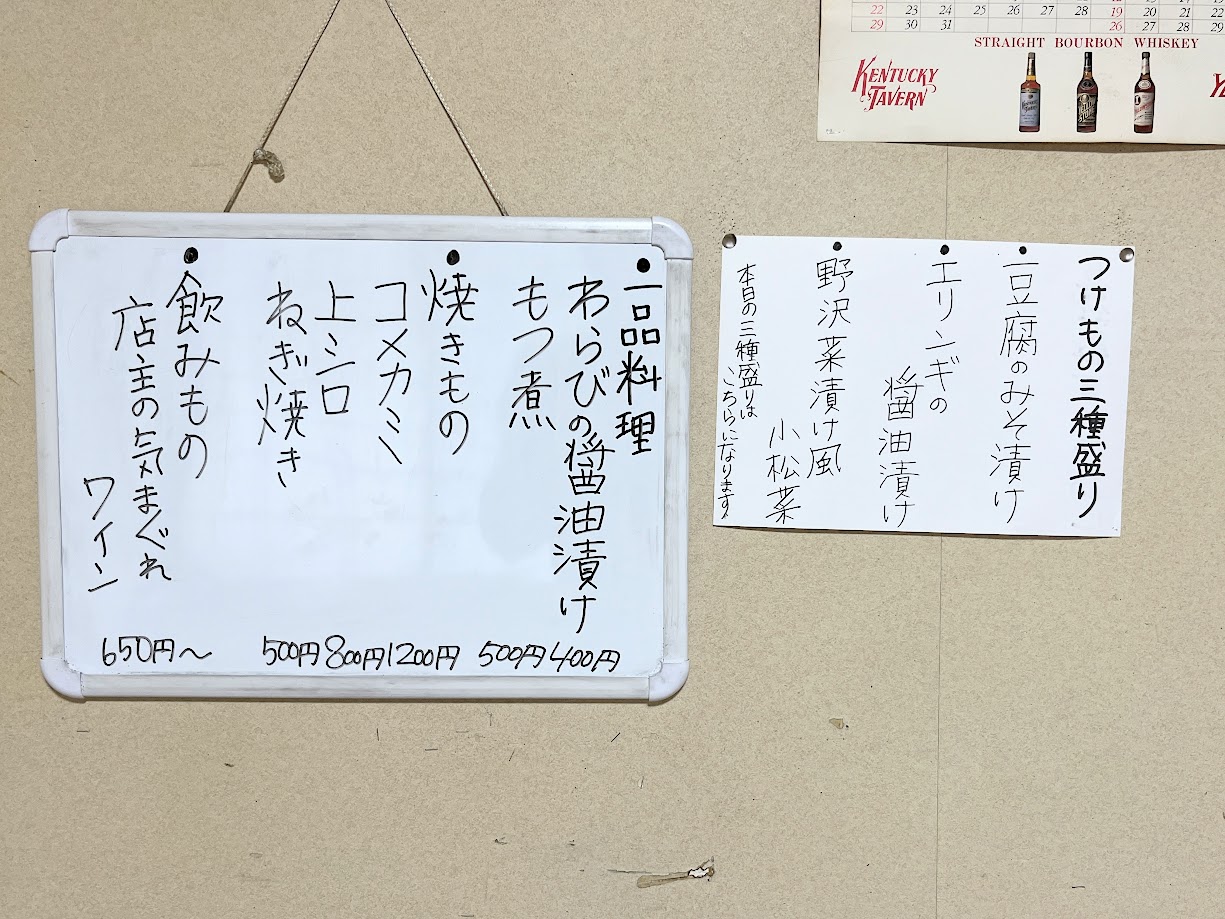 一品料理
わらびの醤油漬け 400円
もつ煮 500円
焼きもの
コメカミ 1200円
上シロ 800円
ねぎ焼き 500円
飲みもの
店主の気まぐれ
ワイン 650円〜
つけもの三種盛り
豆腐のみそ漬け
エリンギの
醤油漬け
野沢菜漬け風
小松菜
本日の三種盛りは
こちらになります。
22 23 24 25 26 27 28
29 30 31
19 20 21 22
26 27 28 29
STRAIGHT BOURBON WHISKEY
KENTUCKY
TAVERN